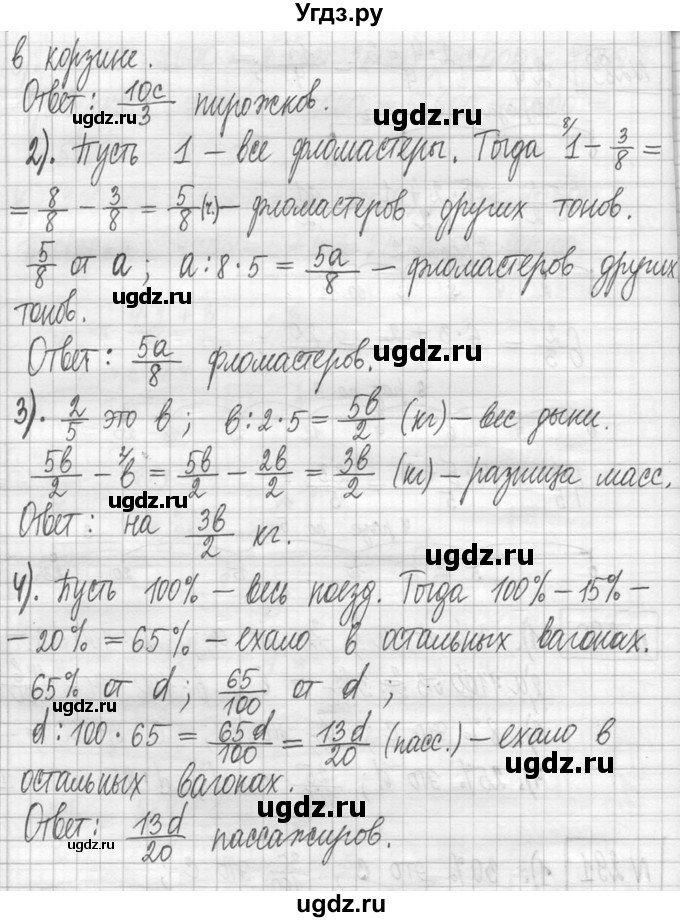 Угдз.ру
в корзине.
Ответ: 10c/3 пирожков.
2). Пусть 1 – все фломастеры. Тогда ⁸⁄1 – 3/8 =
= 8/8 – 3/8 = 5/8 (ч.) – фломастеров других тонов.
5/8 от a; a : 8 · 5 = 5a/8 – фломастеров других
тонов.
Ответ: 5a/8 фломастеров.
3). 2/5 это в; в : 2 · 5 = 5в/2 (кг) – вес дыни.
5в/2 – ²⁄в = 5в/2 – 2в/2 = 3в/2 (кг) – разница масс.
Ответ: на 3в/2 кг.
4). Пусть 100% – весь поезд. Тогда 100% – 15% –
– 20% = 65% – ехало в остальных вагонах.
65% от d; 65/100 от d;
d : 100 · 65 = 65d/100 = 13d/20 (пасс.) – ехало в
остальных вагонах.
Ответ: 13d/20 пассажиров.
ugdz.ru
ugdz.ru
ugdz.ru
ugdz.ru
ugdz.ru
ugdz.ru
ugdz.ru
ugdz.ru
ugdz.ru
ugdz.ru
ugdz.ru
ugdz.ru
ugdz.ru